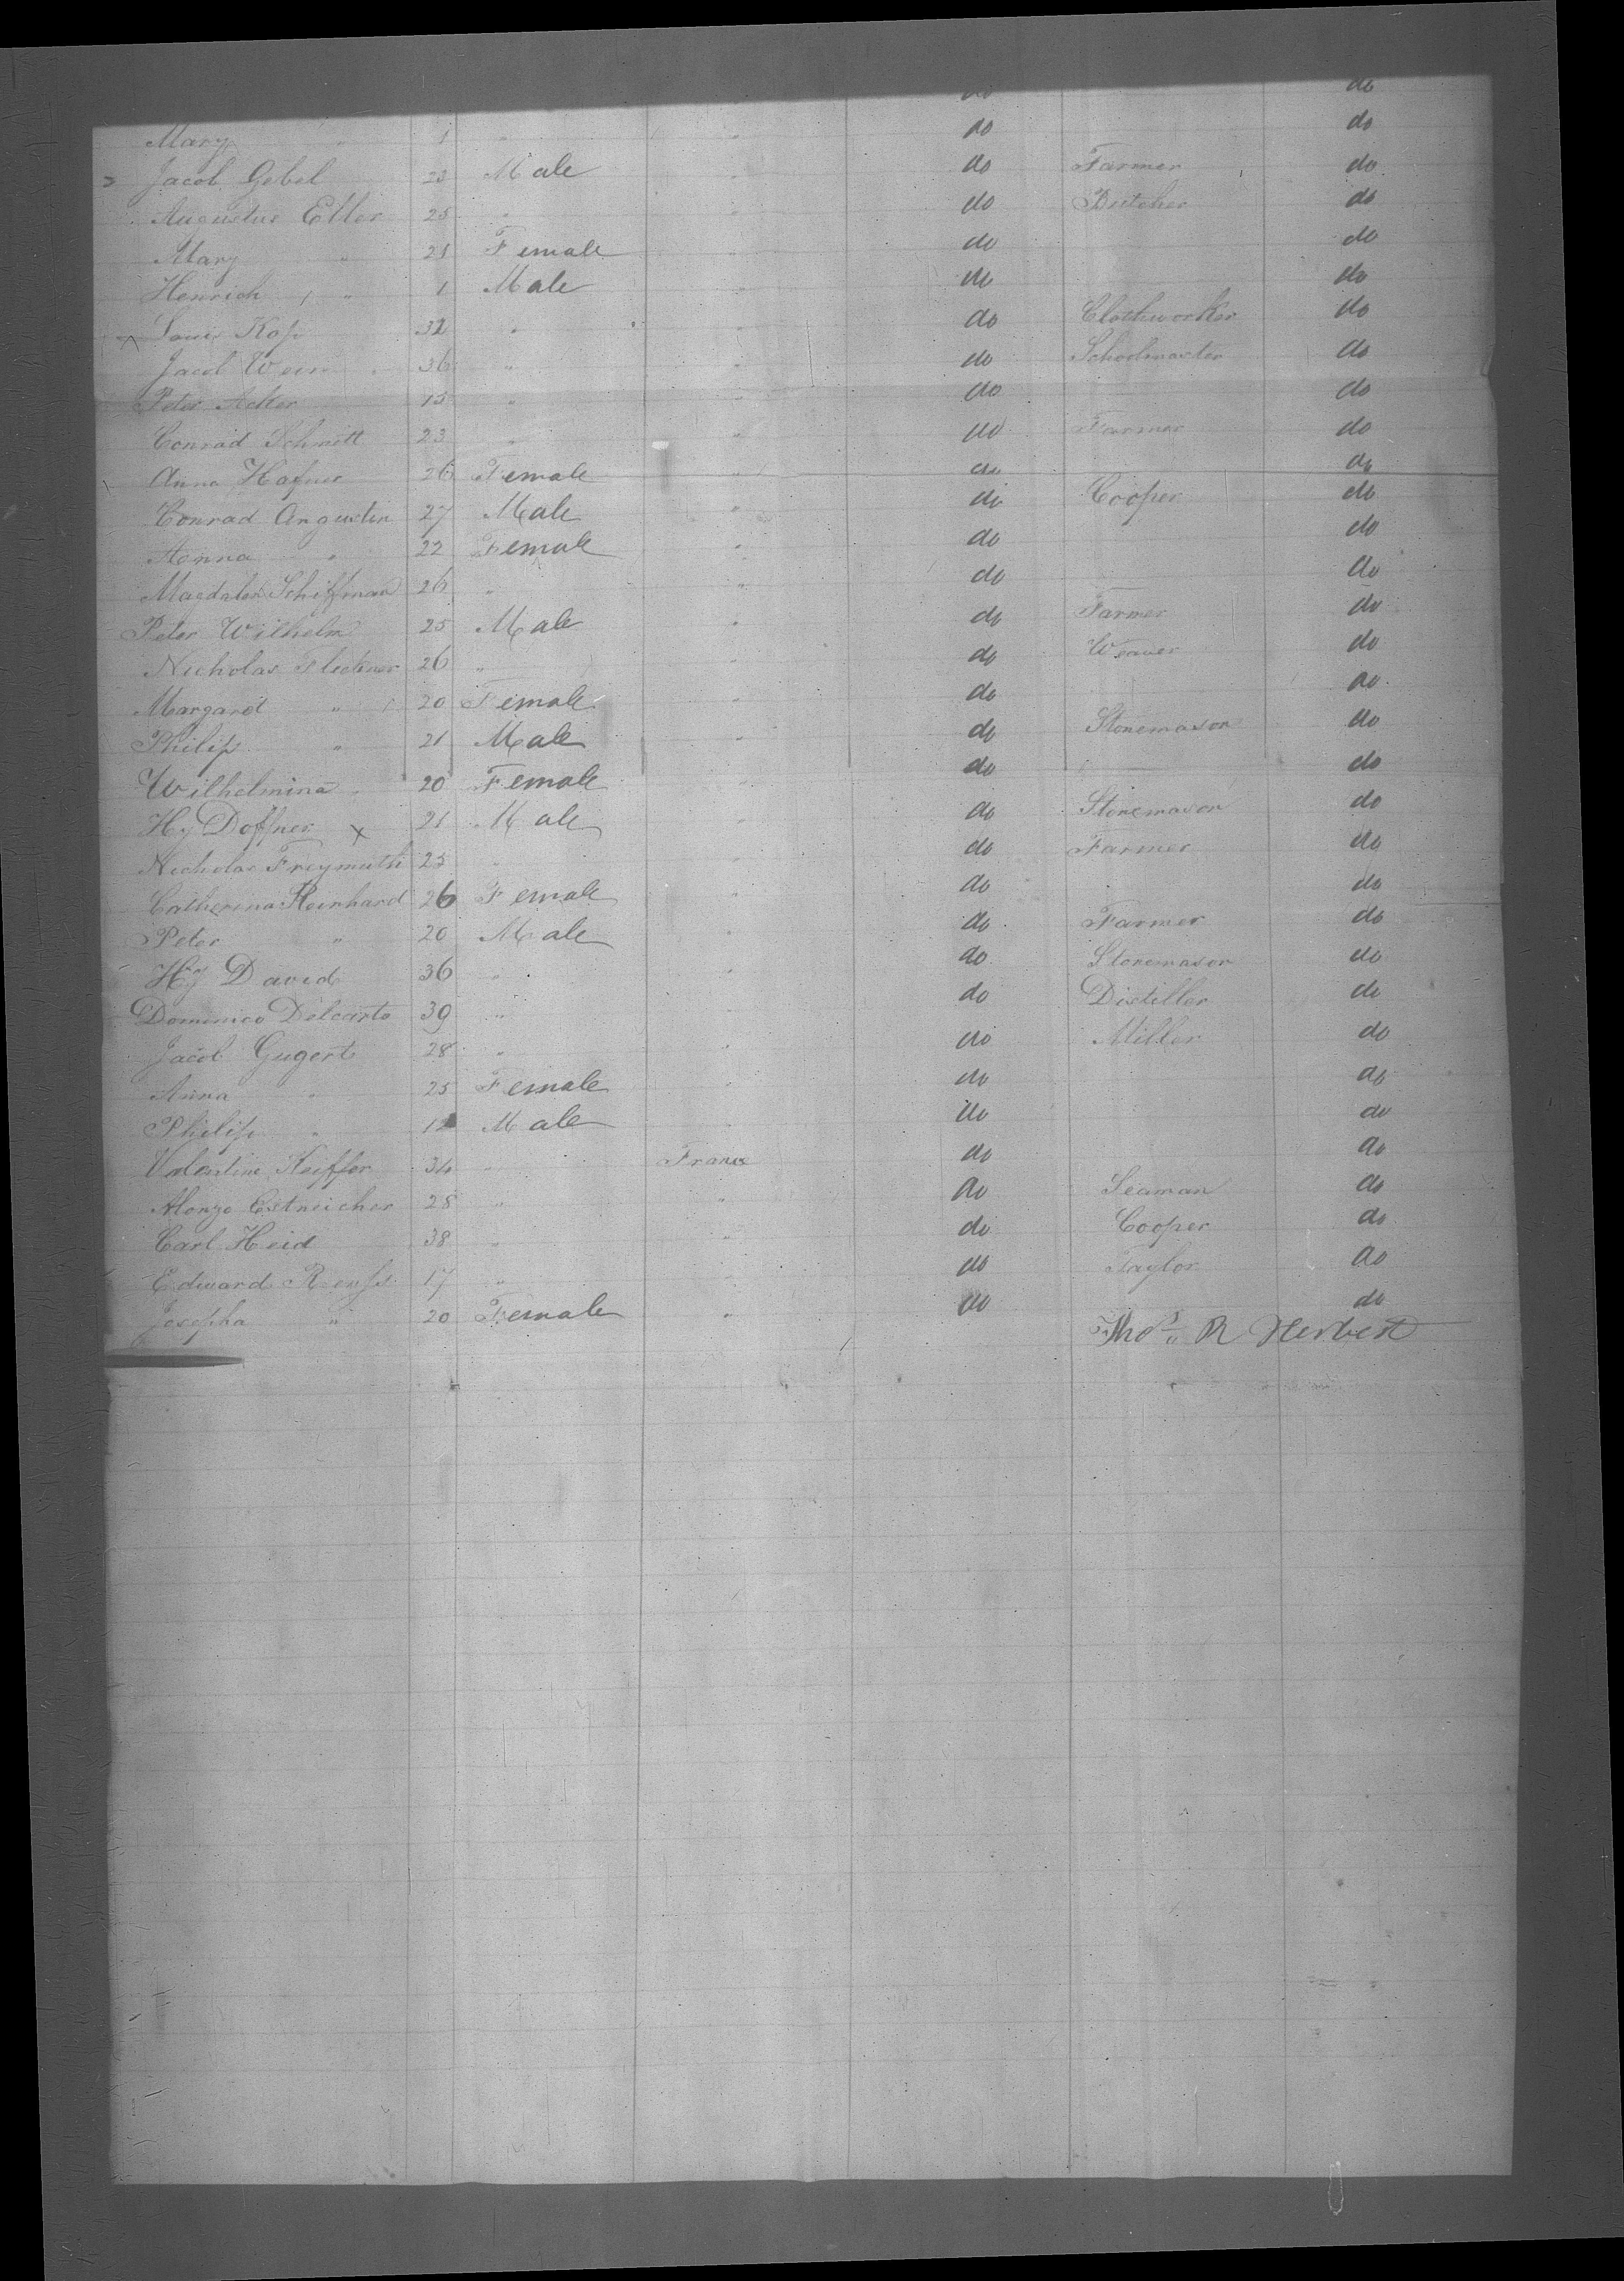 do do
Mary " 1 " " do do
Jacob Gebel 23 Male " do Farmer do
Augustus Eller 25 " " do Butcher do
Mary " 21 Female " do do
Henrich " 1 Male " do do
Louis Kop 32 " " do Clothworker do
Jacob 36 " " do Schoolmaster do
Peter Acker 15 " " do do
Conrad Schmitt 23 " " do Farmer do
Anna Hafner 26 Female " do do
Conrad Angustin 27 Male " do Cooper do
Anna " 22 Female " do do
Magdalen Schiffman 26 " " do do
Peter Wilhelm 25 Male " do Farmer do
Nicholas 26 " " do Weaver do
Margard " 20 Female " do do
Philip " 21 Male " do Stonemason do
Wilhelmina " 20 Female " do do
Hy Doffner x 21 Male " do Stonemason do
Nicholas Freymuth 25 " " do Farmer do
Catherina Reinhard 26 Female " do do
Peter " 20 Male " do Farmer do
Hy David 36 " " do Stonemason do
Dominico Delcarto 39 " " do Distiller do
Jacob Gugert 28 " " do Miller do
Anna " 25 Female " do do
Philip " 12 Male " do do
Valentine Keiffer 34 " France do do
Alonzo 28 " " do Seaman do
Carl Heid 38 " " do Cooper do
Edward 17 " " do Taylor do
Josepha " 20 Female " do do
Thos R Herbert